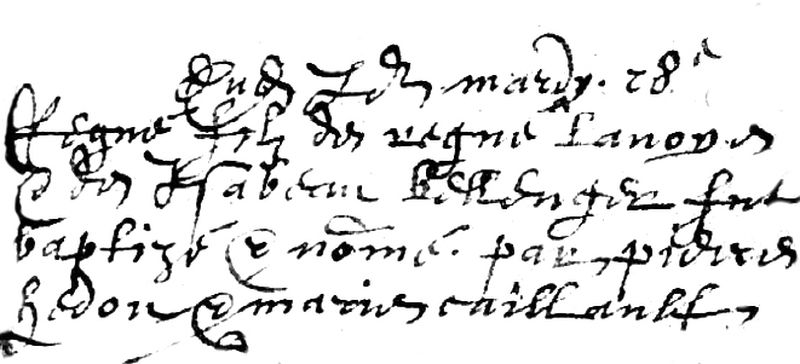 mardy. 28e
Regné filz de regné Lanoye
& de Ysabeau Bellenger fut
baptizé & nômé. par pierre
hedou & marie caillault